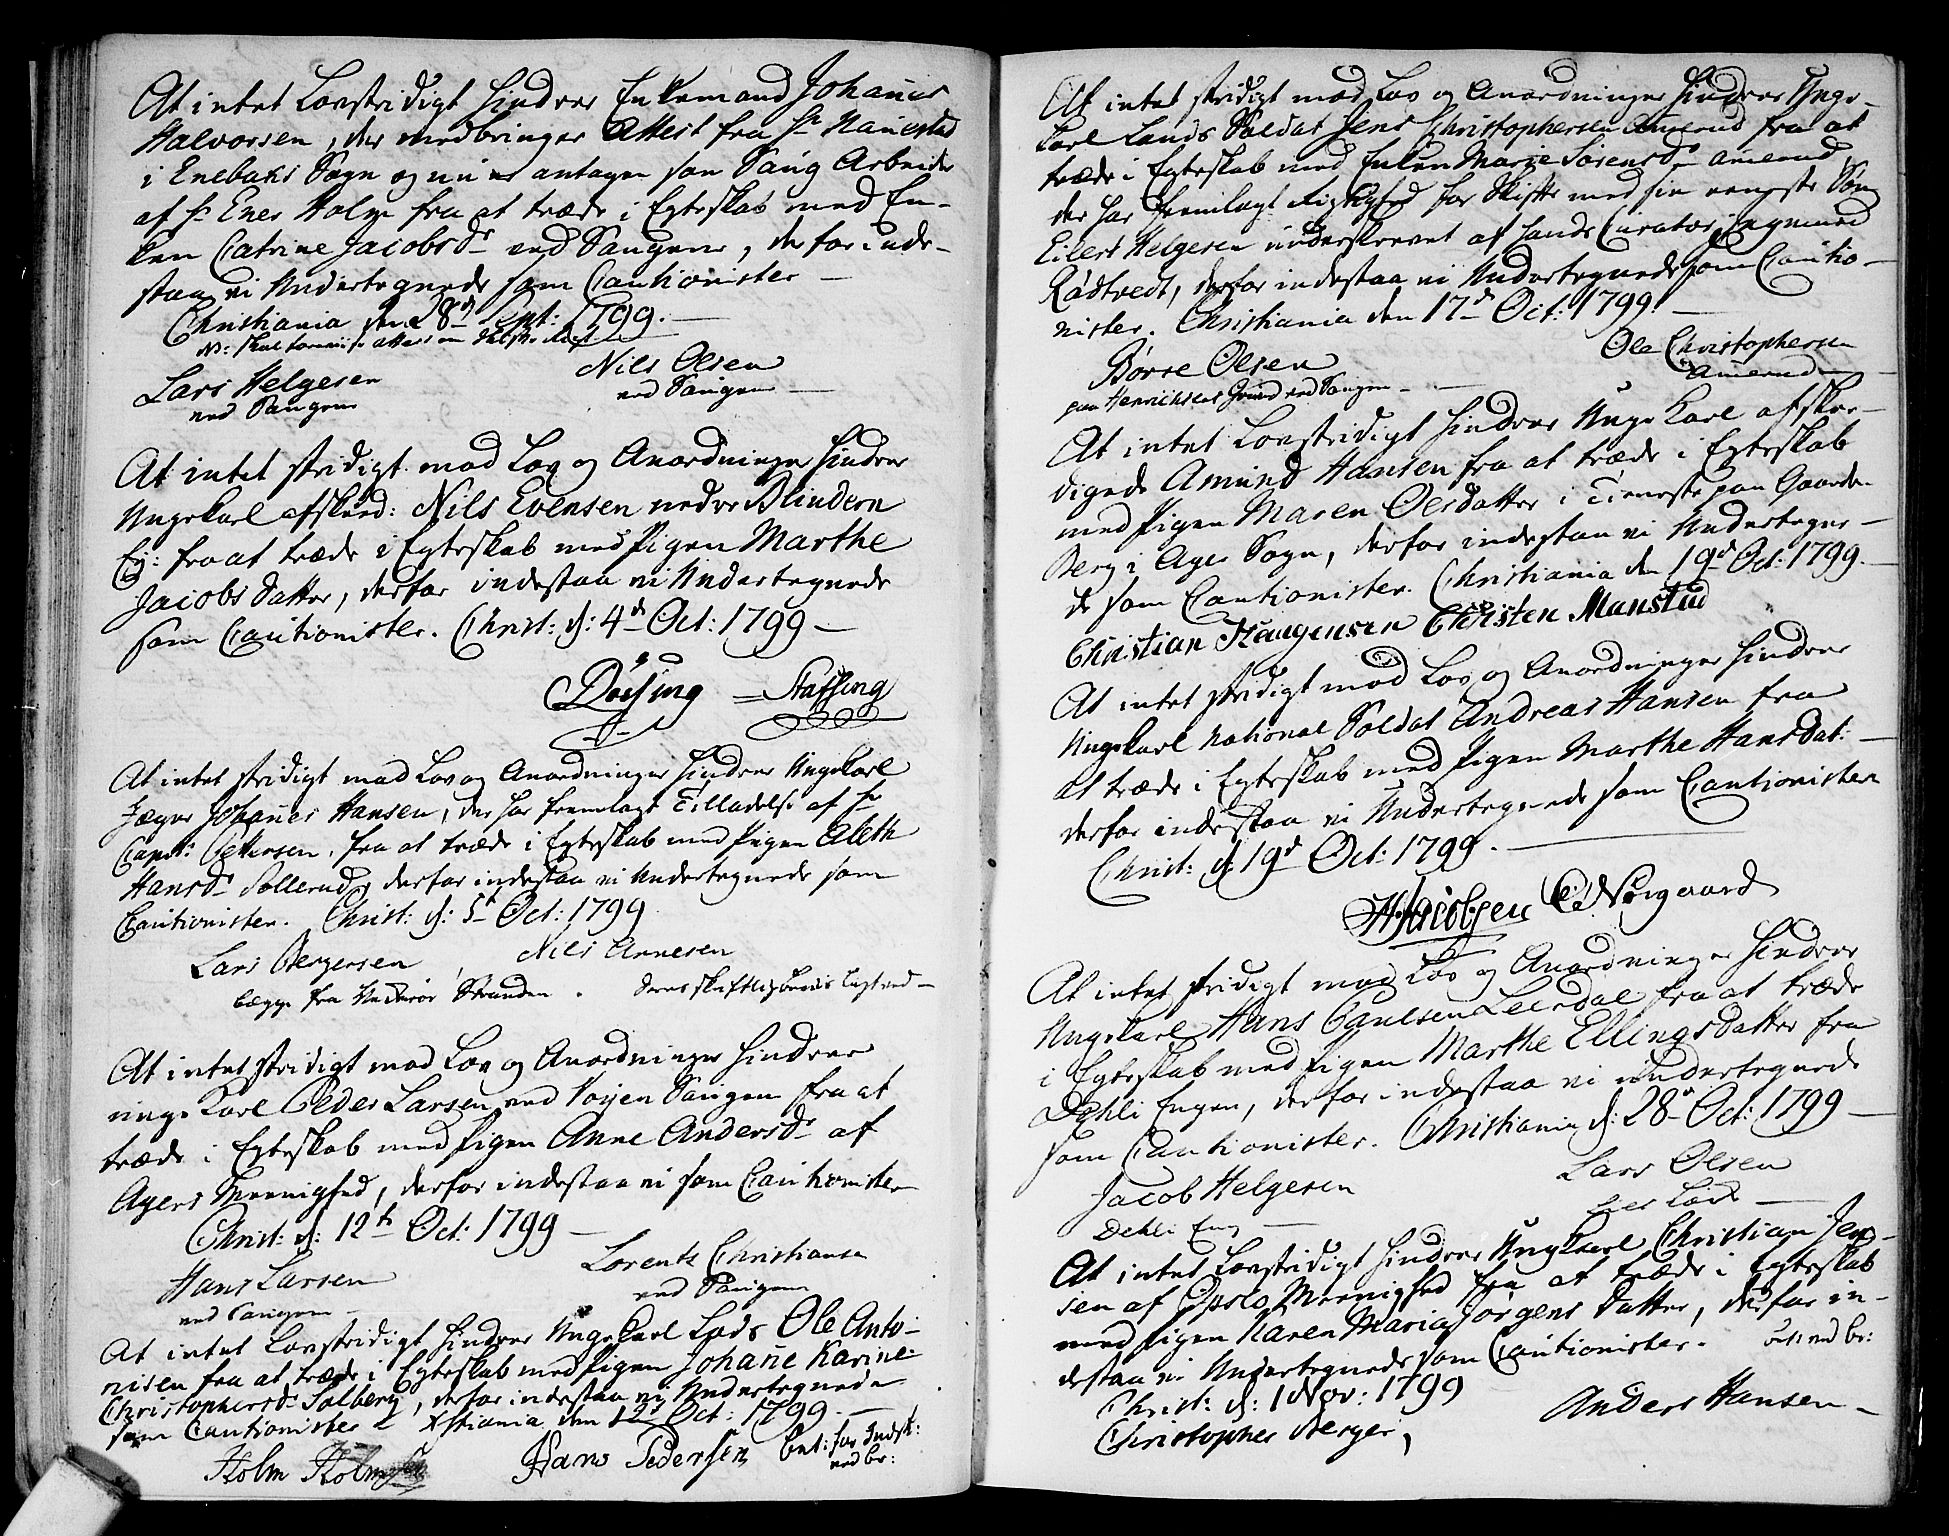 At intet Lovstridigt hindrer Enkemand Johannes
Halvorsen, der medbringer Attest fra Hr
i Enebaks Sogn og nu er antagen som Saug Arbeider
af Hr Ener Holge fra at træde i Egteskab med En-
ken Catrine Jacobsdr ved Saugene, derfor inde-
staa vi Undertegnede som Cautionister
Christiania den 28d Sept: 1799.
Lars Helgesen
ved Saugene
Nils Olsen
ved Saugene
At intet stridigt mod Lov og Anordninger hindrer
Ungekarl afskeed: Nils Evensen nedre Blindern
Ej: fra at træde i Egteskab med Pigen Marthe
Jacobsdatter, derfor indestaa vi Undertegnede
som Cautionister. Christ: d: 4de Oct: 1799
Døssing Staffing
At intet stridigt mod Lov og Anordninger hindrer Ungekarl
Jæger Johannes Hansen, der har fremlagt Tilladelse af Hr
Capt: Pettersen, fra at træde i Egteskab med Pigen Aleth
Hansdr Sollerud, derfor indestaa vi Undertegnede som
Cautionister. Christ: d: 5t Oct: 1799
Lars Bergersen Nils Arnesen
begge fra Stranden.
At intet stridigt mod Lov og Anordninger hindrer
unge Karl Peder Larsen ved Voyen Saugen fra at
træde i Egteskab med Pigen Anne Andersdr af
Agers Meenighed, derfor indestaa vi som Cautionister
Christ: d: 12te Oct: 1799
Hans Larsen
ved Saugene
Lorentz Christiansen
ved Saugene
At intet Lovstridigt hindrer Ungekarl Lods Ole Anto-
nisen fra at træde i Egteskab med Pigen Johanne Karine
Christophersdr Solberg, derfor indestaa vi Undertegnede
som Cautionister Xstiania den 12t Oct: 1799.
Holm Holmsen Hans Pedersen
At intet stridigt mod Lov og Anordninger hindrer Unge-
karl Lands Soldat Jens Christophersen Amerud fra at
træde i Egteskab med Enken Marie Sørensdr Amerud
der har fremlagt Rigtighed for Skifte med sin eeneste Søn
Eilert Helgesen underskrevet af hands Curator Ingmund
Rødtvedt, derfor indestaa vi Undertegnede som Cautio-
nister. Christiania den 17d Oct: 1799.
Børre Olsen
paa Henrichsens Grund ved Saugene
Ole Christophersen
Amerud
At intet Lovstridigt hindrer Unge Karl afskee-
digede Amund Hansen fra at træde i Egteskab
med Pigen Maren Olesdatter i Tieneste paa Gaarden
Berg i Agers Sogn, derfor indestaa vi Undertegne-
de som Cautionister. Christiania den 19d Oct: 1799.
Christian Haugensen Christen Manstad
At intet stridigt mod Lov og Anordninger hindrer
Ungekarl National Soldat Andreas Hansen fra
at træde i Egteskab med Pigen Marthe Hansdat:
derfor indestaa vi Undertegnede som Cautionister
Christ: d: 19d Oct: 1799.
H Jacobsen C Nørgaard
At intet stridigt mod Lov og Anordninger hindrer
Ungekarl Hans Paulsen Leerdal fra at træde
i Egteskab med Pigen Marthe Ellingsdatter fra
Dehli Engen, derfor indestaa vi undertegnede
som Cautionister. Christiania d: 28d Oct: 1799
Jacob Helgesen
Dehli Eng
Lars Olsen
At intet Lovstridigt hindrer Ungkarl Christian Jen-
sen af Opslo Meenighed fra at træde i Egteskab
med Pigen Karen Maria Jørgens Datter, derfor in-
destaa vi Undertegnede som Cautionister.
Christ: d: 1 Nov: 1799
Christopher Berger,
Anders Hansen